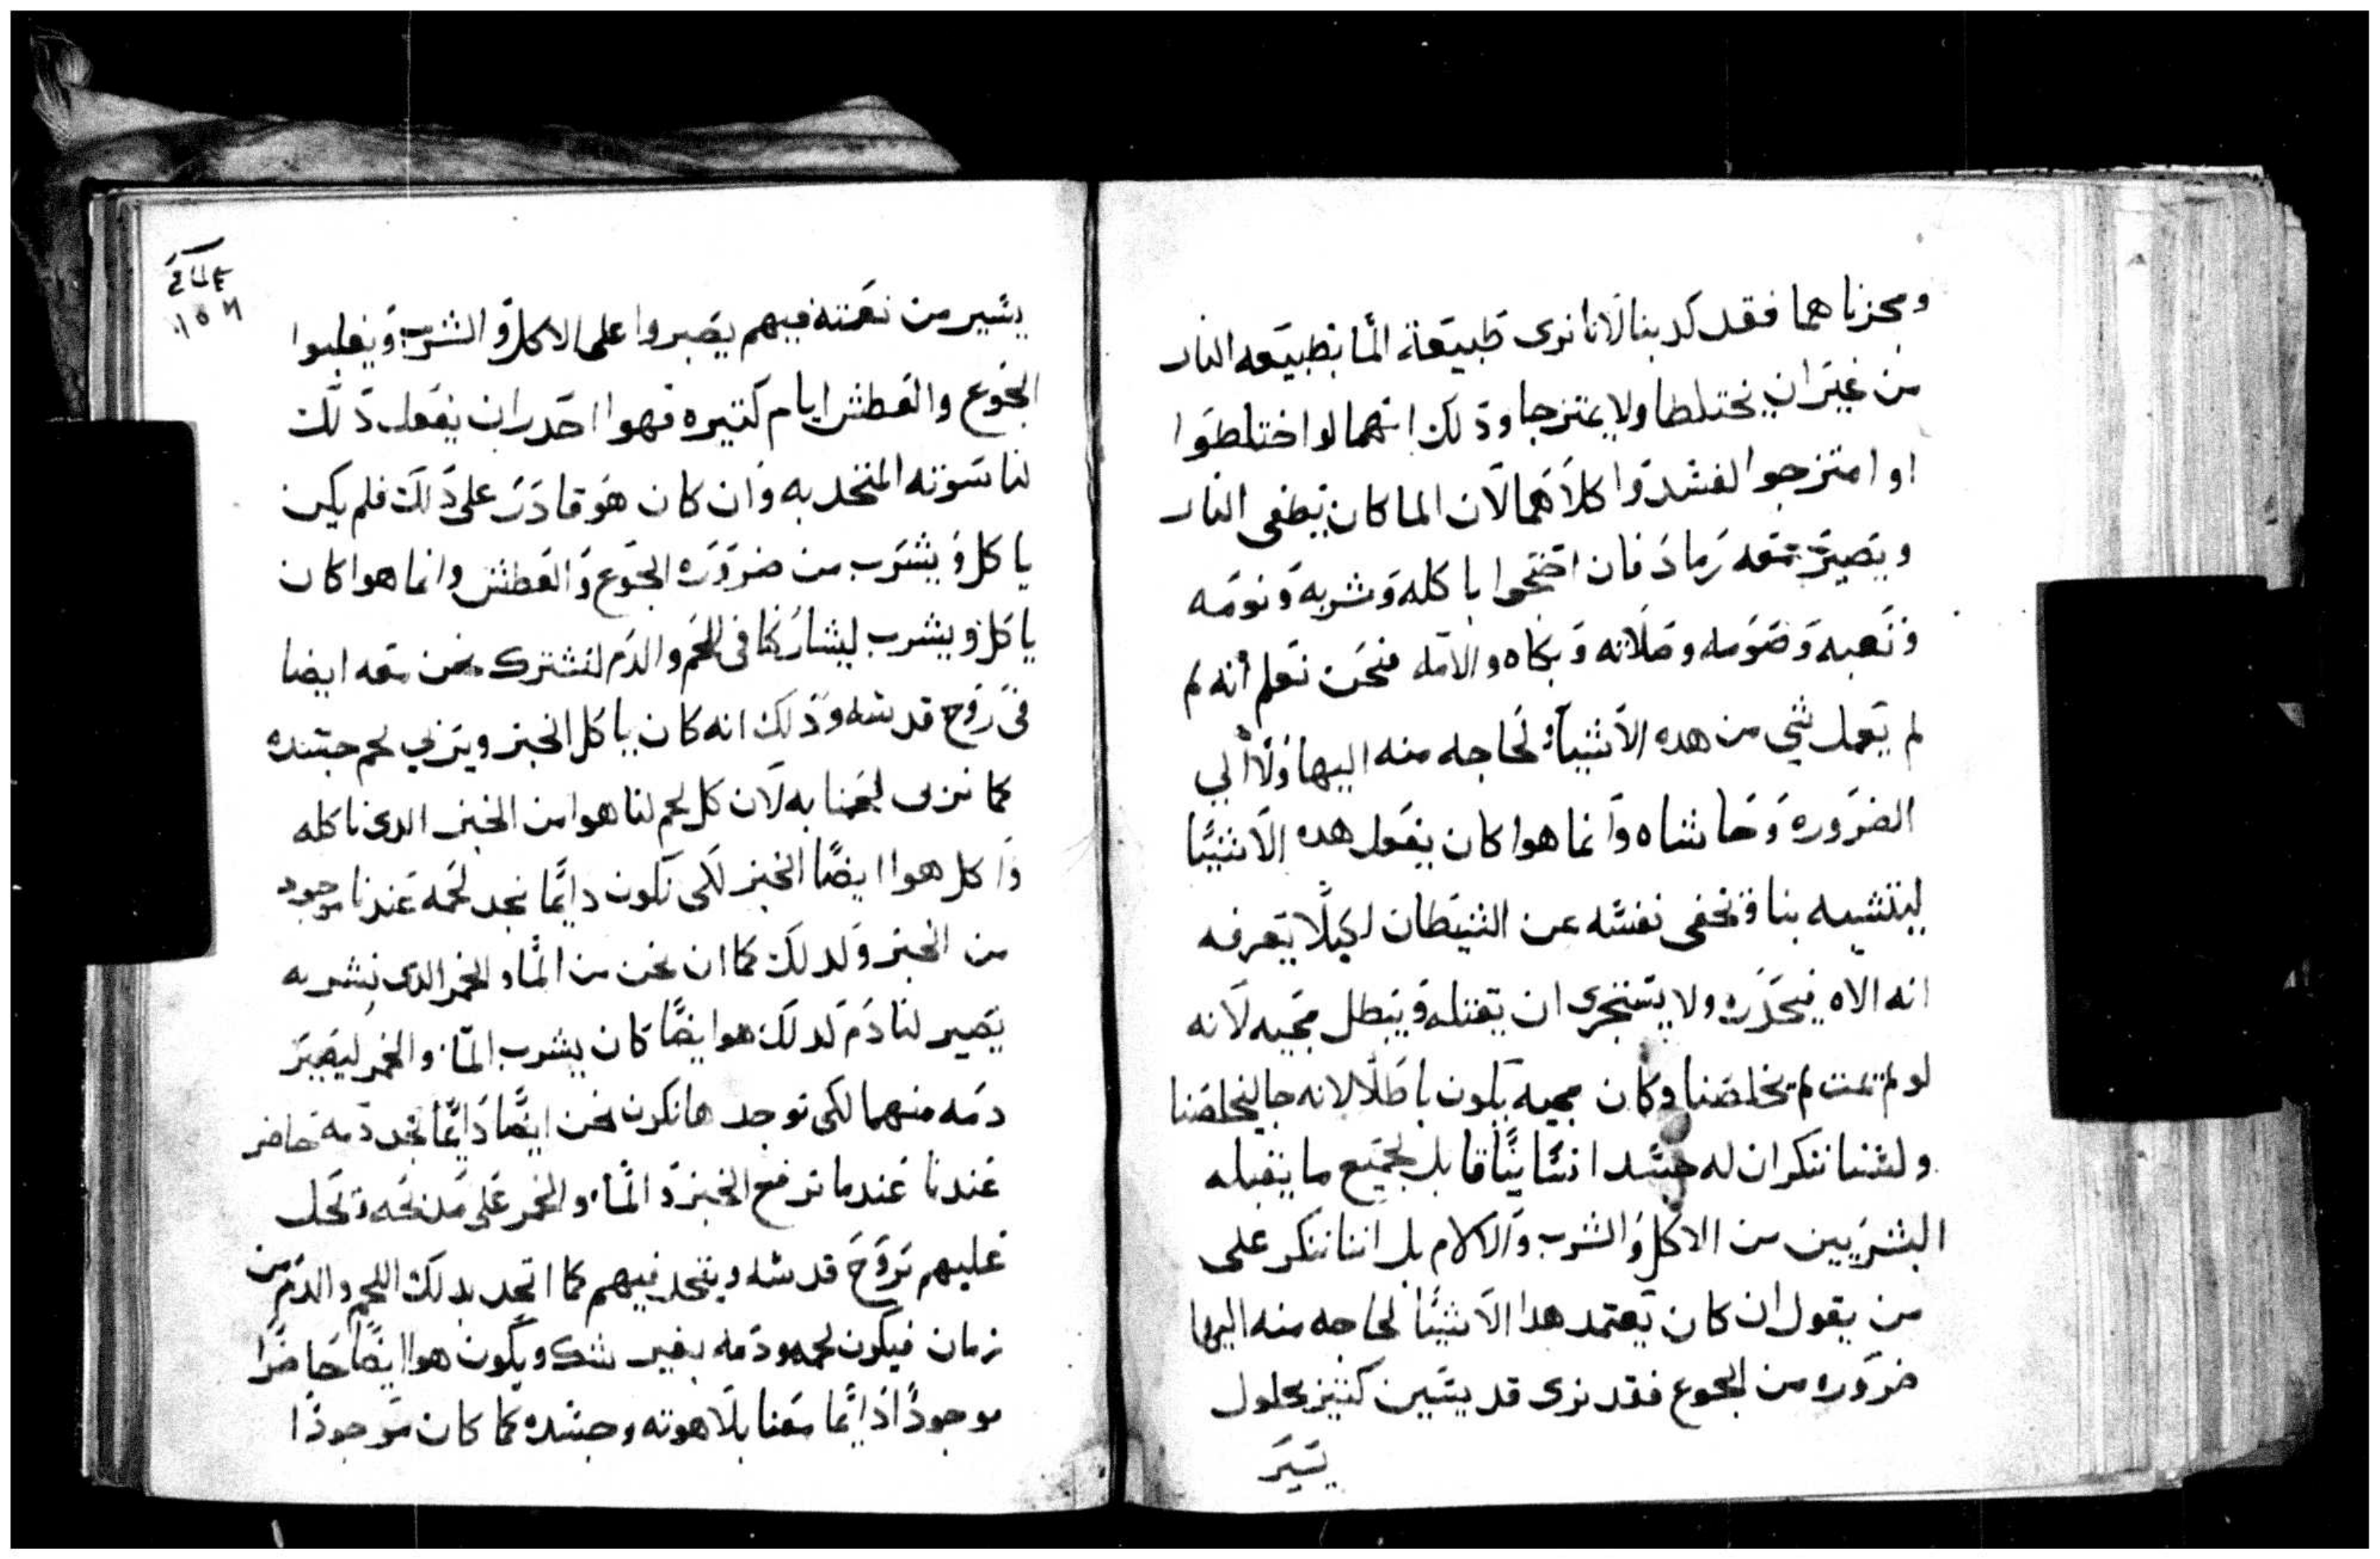 ومجزناهما فقد كدبنا لانا نرى طبيعة الما بطبيعه النار
من غير ان يختلطا ولا يمتزجا ودلك انهما لو اختلطوا
او امتزجوا لفسدوا كلاهما لان الما كان يطفى النار
ويصير معه رماد فان احتجوا باكله وشربه ونومه
وتعبه وصومه وصلاته وبكاه والامه فنحن نعلم أنه لم
لم يعمل شي من هده الاشيآء لحاجه منه اليها ولا ألي
الضروره وحاشاه وانما هوا كان يفعل هده الاشيًا
ليتشبه بنا ويخفى نفسه عن الشيطان لكيلا يعرفه
انه الاه فيحذره ولا يستجرى ان يقتله ويبطل مجيه لانه
لو لم يمت لم يخلصنا وكان مجيه يكون باطلا لانه جا ليخلصنا
ولسنا ننكر ان له جسد انسانيًا قابل لجميع ما يقبله
البشريين من الاكل والشرب والالام بل اننا ننكر على
من يقول ان كان يعتمد هدا الاشيًا لحاجه منه اليها
ضروره من الجوع فقد نرى قديسين كثير بحلول
يسير
يسير من نعمته فيهم يصبروا على الاكل والشرب ويغلبوا
الجوع والعطش ايام كتيره فهوا احدر ان يفعل دلك
لناسوته المتحد به وان كان هو قادر على دلك فلم يكن
ياكل ويشرب من ضروره الجوع والعطش وانما هوا كان
ياكل ويشرب ليشاركنا فى اللحم والدم لنشترك نحن معه ايضا
فى روح قدسه ودلك انه كان ياكل الخبز ويربي لحم جسده
كما نربى لحمنا به لان كل لحم لنا هوا من الخبز الدى ناكله
واكل هوا ايضًا الخبز لكى نكون دايمًا نجد لحمه عندنا موجود
من الخبز ولدلك كما ان نحن من الما والخمر الدى نشربه
يصير لنا دم كدلك هوا يضًا كان يشرب المآ والخمر ليصير
دمه منهما لكى نوجد هانكرن نحن ايضًا دايمًا نجد دمه حاضر
عندنا عندما نرفع الخبز والمآ والخمر على مدبحه وتحل
عليهم روح قدسه ويتحد فيهم كما اتحد بدلك اللحم والدم من
زمان فيكون لحمه ودمه بغير شك ويكون هوا ايضًا حاضرًا
موجودًا دايمًا معنا بلاهوته وجسده كما كان موجودًا